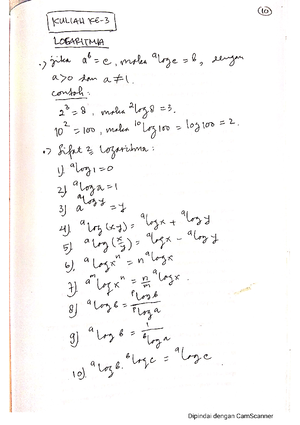 (10)
KULIAH KE-3
LOGARITMA
•) jika aᵇ = c, maka ᵃlog c = b, dengan
a>0 dan a ≠ 1.
contoh:
2³ = 8, maka ²log 8 = 3.
10² = 100, maka ¹⁰log 100 = log 100 = 2.
•) Sifat² Logaritma:
1) ᵃlog 1 = 0
2) ᵃlog a = 1
3) a^(ᵃlog y) = y
4) ᵃlog (xy) = ᵃlog x + ᵃlog y
5) ᵃlog (x/y) = ᵃlog x - ᵃlog y
6) ᵃlog xⁿ = n ᵃlog x
7) ᵃ^m log xⁿ = n/m ᵃlog x.
8) ᵃlog b = ᵖlog b / ᵖlog a
9) ᵃlog b = 1 / ᵇlog a
10) ᵃlog b. ᵇlog c = ᵃlog c
Dipindai dengan CamScanner